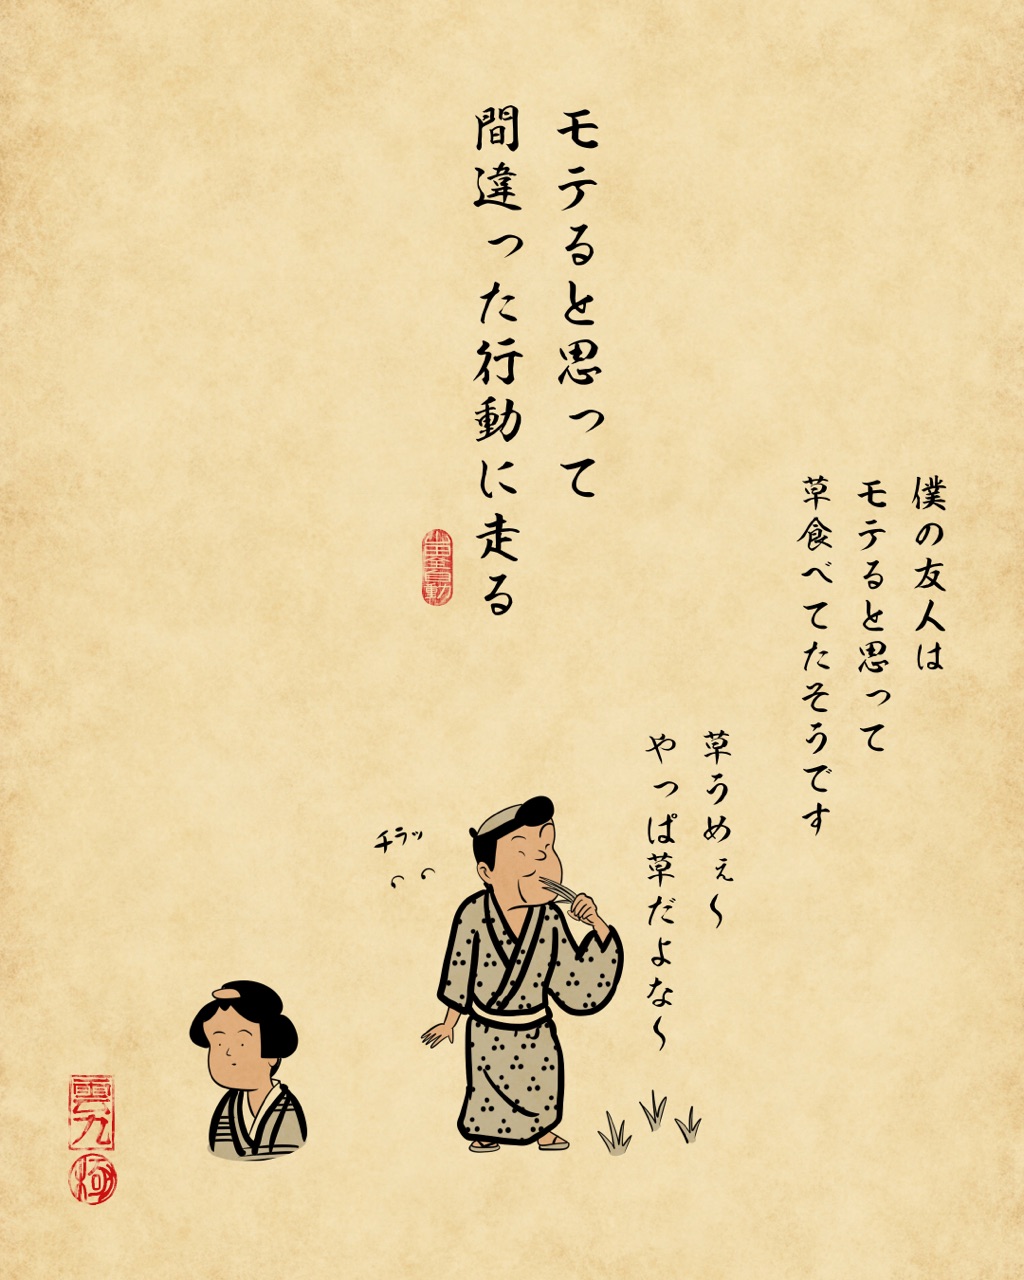 モテると思って
間違った行動に走る
僕の友人は
モテると思って
草食べてたそうです
草うめぇ〜
やっぱ草だよな〜
チラッ